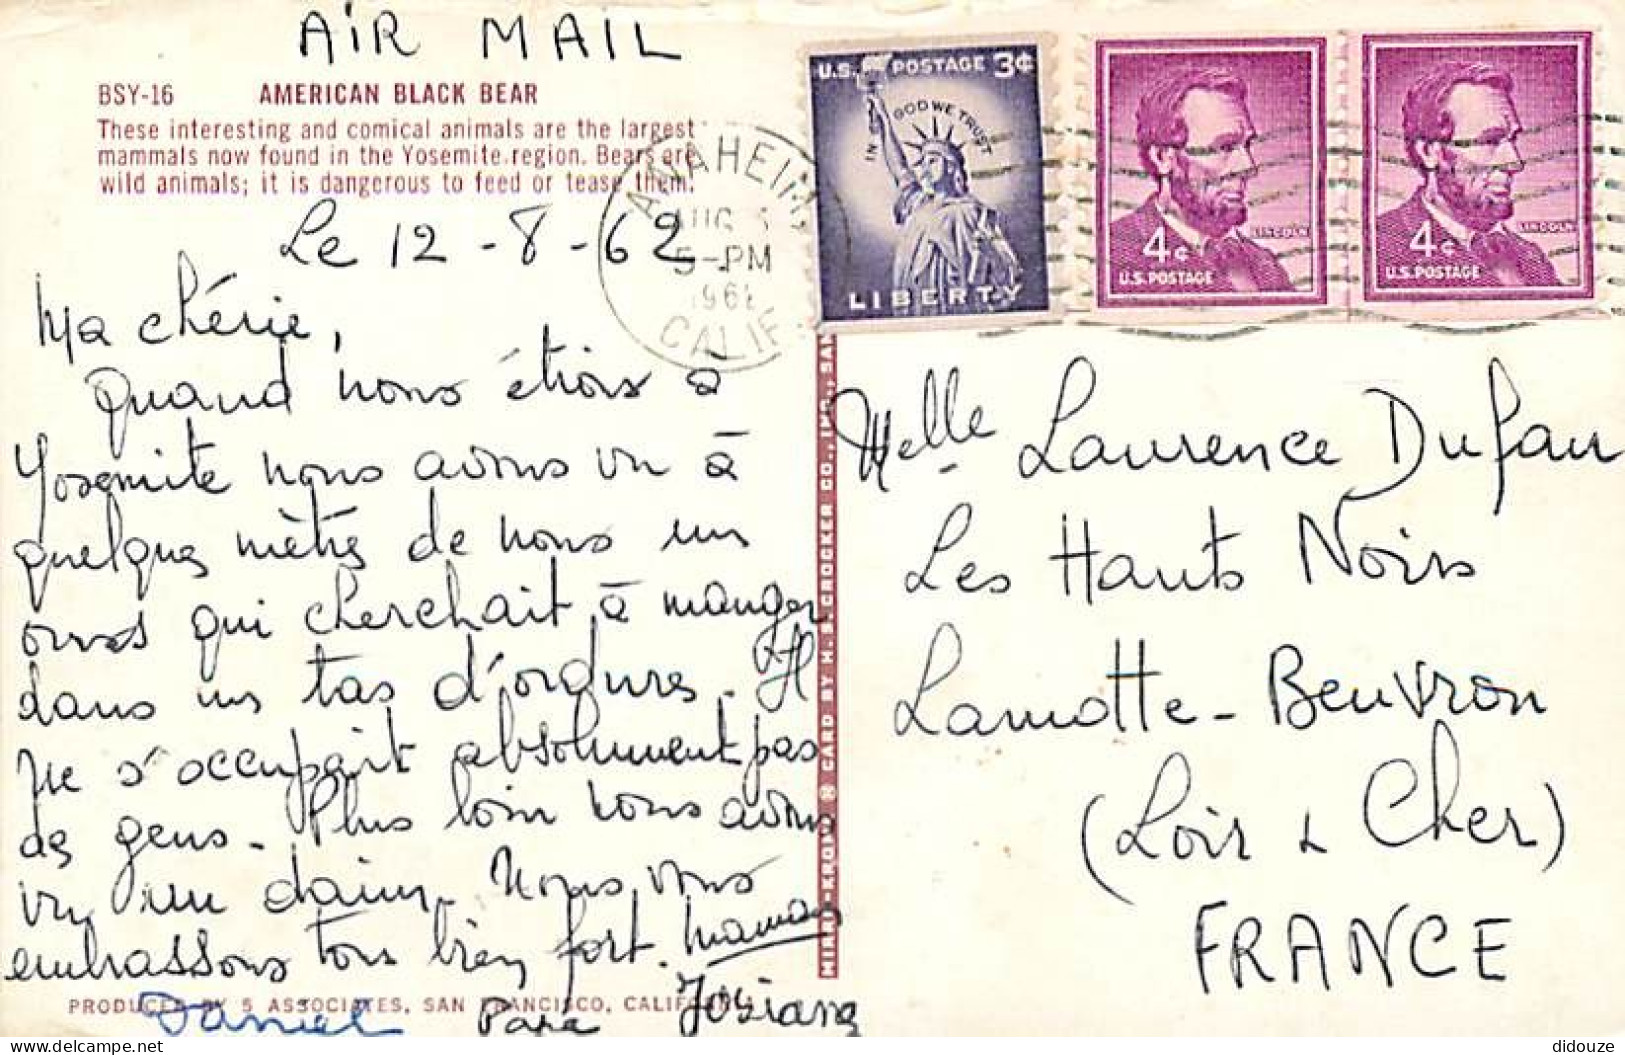 AIR MAIL
BSY-16 AMERICAN BLACK BEAR
These interesting and comical animals are the largest
mammals now found in the Yosemite region. Bears are
wild animals; it is dangerous to feed or tease them.
Le 12-8-62
Ma chérie,
Quand nous étions à
Yosemite nous avons vu à
quelques mètres de nous un
ours qui cherchait à manger
dans un tas d'ordures. Il
ne s'occupait absolument pas
des gens. Plus loin nous avons
vu un daim. Nous vous
embrassons tous bien fort. Maman
Daniel Papa Josiane
PRODUCED BY 5 ASSOCIATES, SAN FRANCISCO, CALIFORNIA
MIRRO-KROME ® CARD BY H. S. CROCKER CO., INC., SAN
ANAHEIM
AUG
5-PM
1962
CALIF.
U.S. POSTAGE 3¢
IN GOD WE TRUST
LIBERTY
LINCOLN
4¢
U.S. POSTAGE
LINCOLN
4¢
U.S. POSTAGE
Melle Laurence Dufau
Les Hauts Noirs
Lamotte-Beuvron
(Loir & Cher)
FRANCE
delcampe.net
didouze